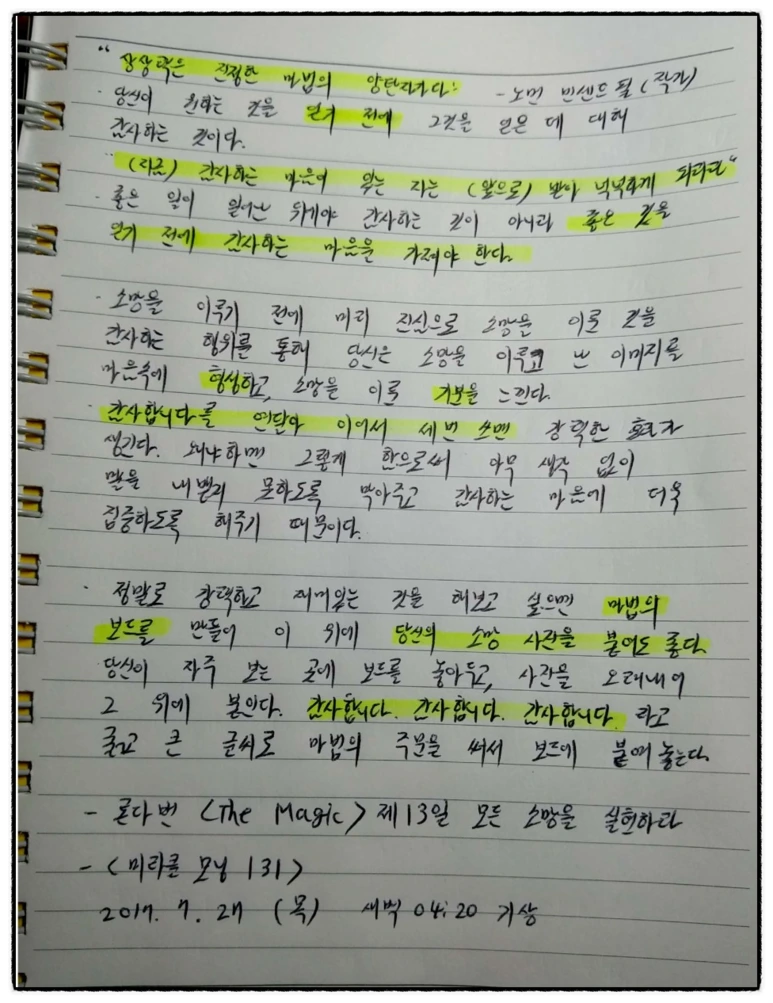 "상상력은 진정한 마법의 양탄자다." - 노먼 빈센트 필 (작가)
· 당신이 원하는 것을 얻기 전에 그것을 얻은 데 대해
감사하는 것이다.
· "(지금) 감사하는 마음이 있는 자는 (앞으로) 받아 넉넉하게 되리라"
· 좋은 일이 일어난 뒤에야 감사하는 것이 아니라 좋은 것을
얻기 전에 감사하는 마음을 가져야 한다.
· 소망을 이루기 전에 미리 진심으로 소망을 이룬 것을
감사하는 행위를 통해 당신은 소망을 이루고 난 이미지를
마음속에 형성하고, 소망을 이룬 기분을 느낀다.
· 감사합니다를 연달아 이어서 세 번 쓰면 강력한 효과가
생긴다. 왜냐하면 그렇게 함으로써 아무 생각 없이
말을 내뱉지 못하도록 막아주고 감사하는 마음에 더욱
집중하도록 해주기 때문이다.
· 정말로 강력하고 재미있는 것을 해보고 싶으면 마법의
보드를 만들어 이 위에 당신의 소망 사진을 붙여도 좋다.
당신이 자주 보는 곳에 보드를 놓아두고, 사진을 오려내어
그 위에 붙인다. 감사합니다. 감사합니다. 감사합니다. 라고
굵고 큰 글씨로 마법의 주문을 써서 보드에 붙여 놓는다.
- 론다 번 <The Magic> 제13일 모든 소망을 실현하라
- <미라클 모닝 131>
2017. 7. 27 (목) 새벽 04:20 기상